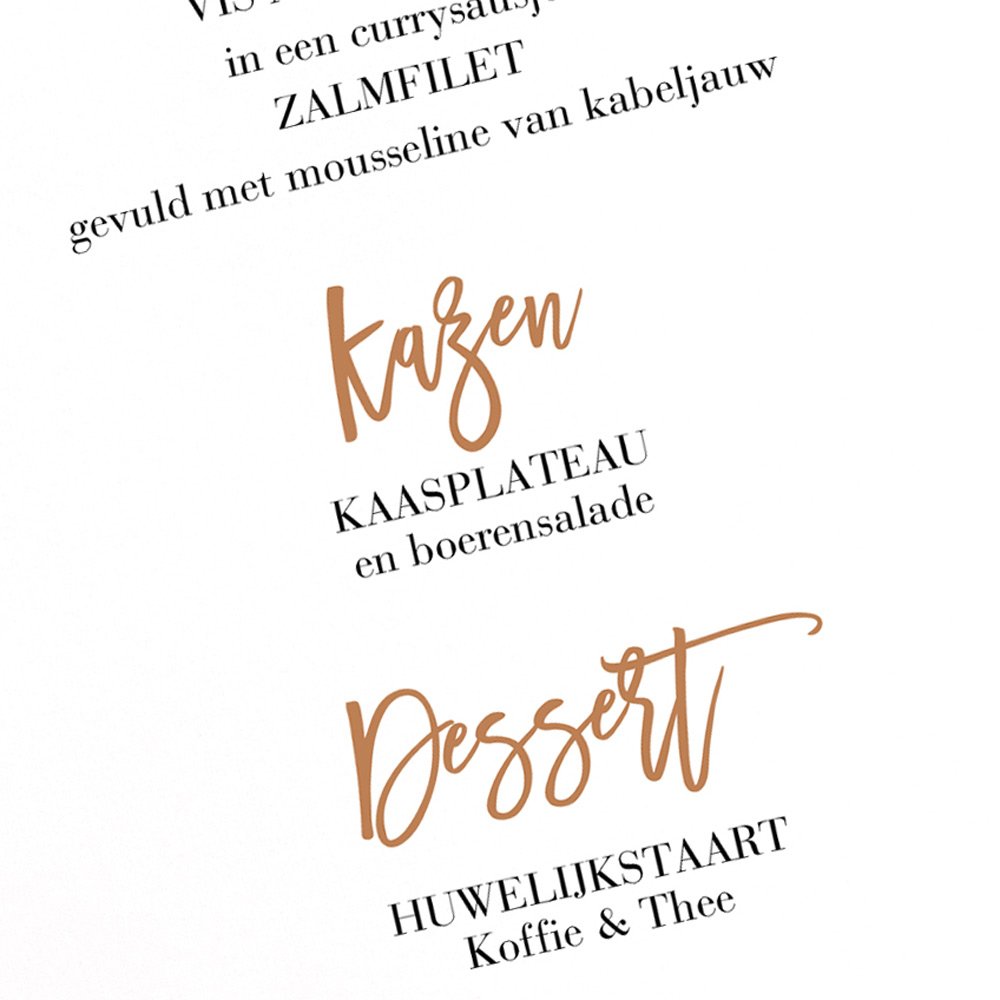 in een
ZALMFILET
gevuld met mousseline van kabeljauw
Kazen
KAASPLATEAU
en boerensalade
Dessert
HUWELIJKSTAART
Koffie & Thee